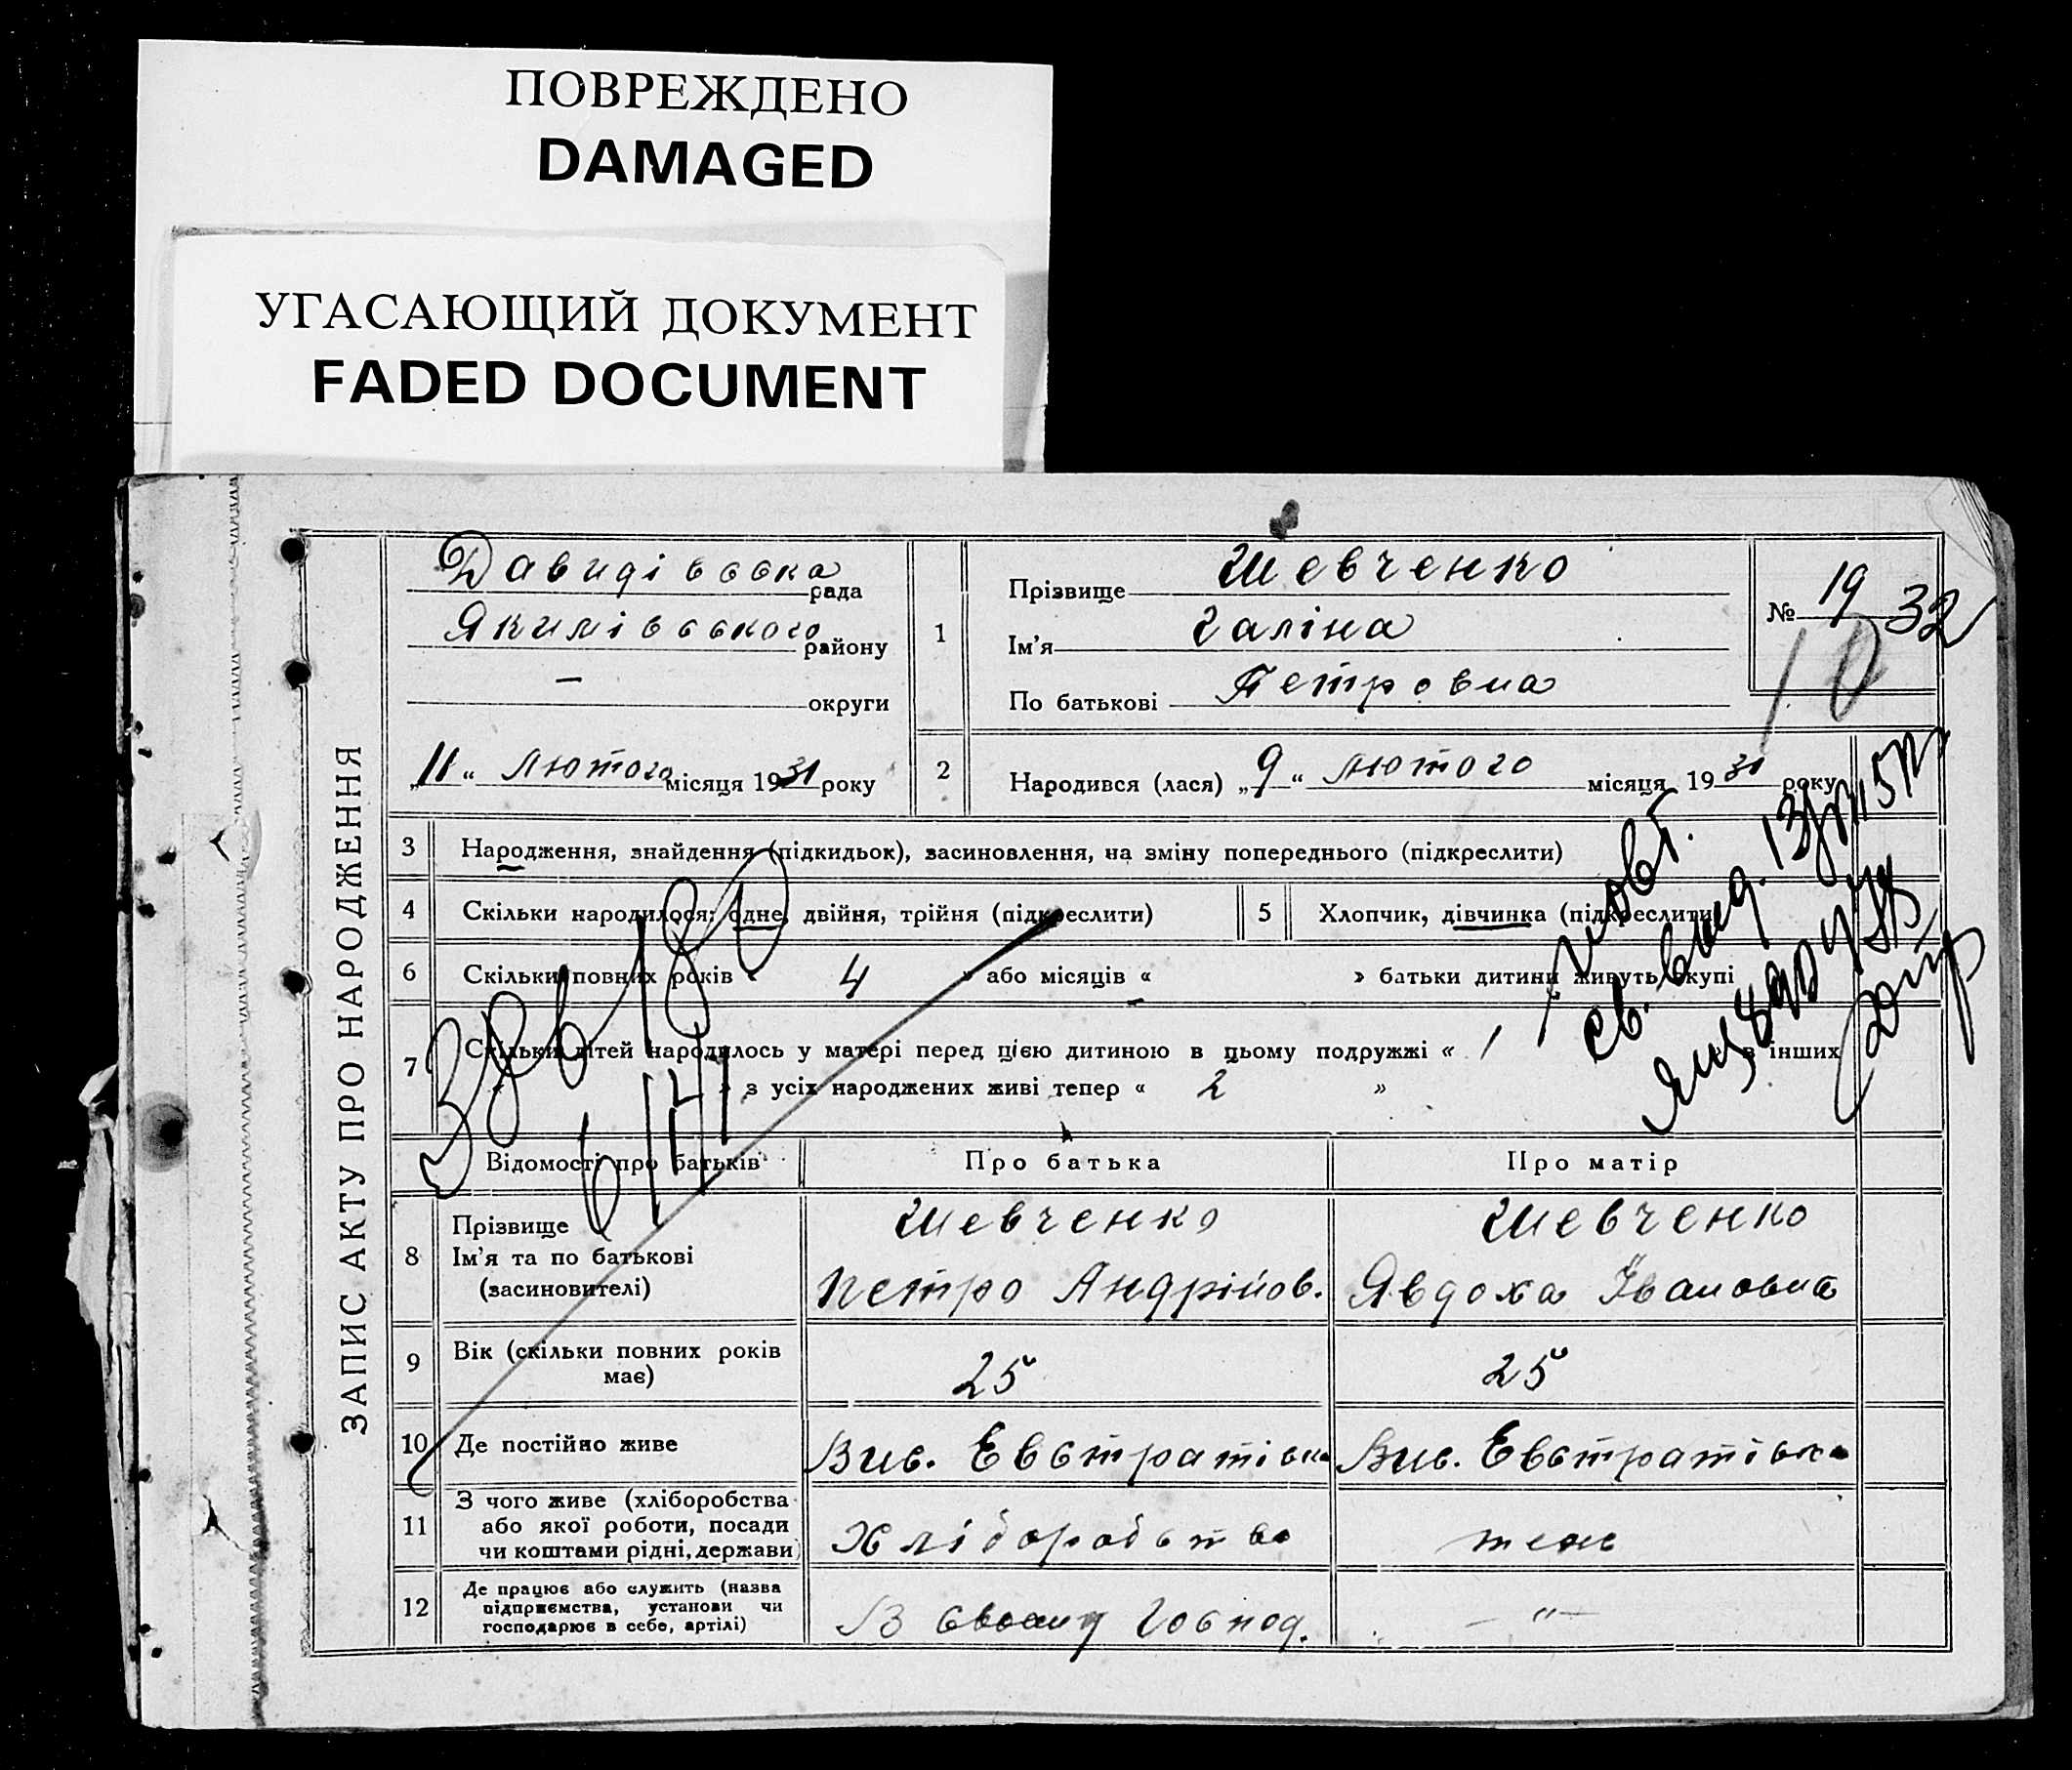 ПОВРЕЖДЕНО
DAMAGED
УГАСАЮЩИЙ ДОКУМЕНТ
FADED DOCUMENT
ЗАПИС АКТУ ПРО НАРОДЖЕННЯ
Давидівська рада
Якимівського району
— округи
„11“ лютого місяця 1931 року
1
Прізвище Шевченко
Ім'я Галіна
По батькові Петровна
№ 19
32
10
2 Народився (лася) „9“ лютого місяця 1931 року
3 Народження, знайдення (підкидьок), засиновлення, на зміну попереднього (підкреслити)
4 Скільки народилося: одне, двійня, трійня (підкреслити)
5 Хлопчик, дівчинка (підкреслити)
6 Скільки повних років „ 4 » або місяців « — » батьки дитини живуть вкупі
7 Скільки дітей народилось у матері перед цією дитиною в цьому подружжі « 1 в інших
« » з усіх народжених живі тепер « 2 »
св. вид.
Відомості про батьків
Про батька
Про матір
8 Прізвище
Ім'я та по батькові
(засиновителі)
Шевченко
Петро Андрійов.
Шевченко
Явдоха Івановна
9 Вік (скільки повних років має)
25
25
10 Де постійно живе
Вис. Евстратівка
Вис. Евстратівка
11 З чого живе (хліборобства
або якої роботи, посади
чи коштами рідні, держави)
Хліборобство
теж
12 Де працює або служить (назва
підприємства, установи чи
господарює в себе, артілі)
В своему господ.
— " —